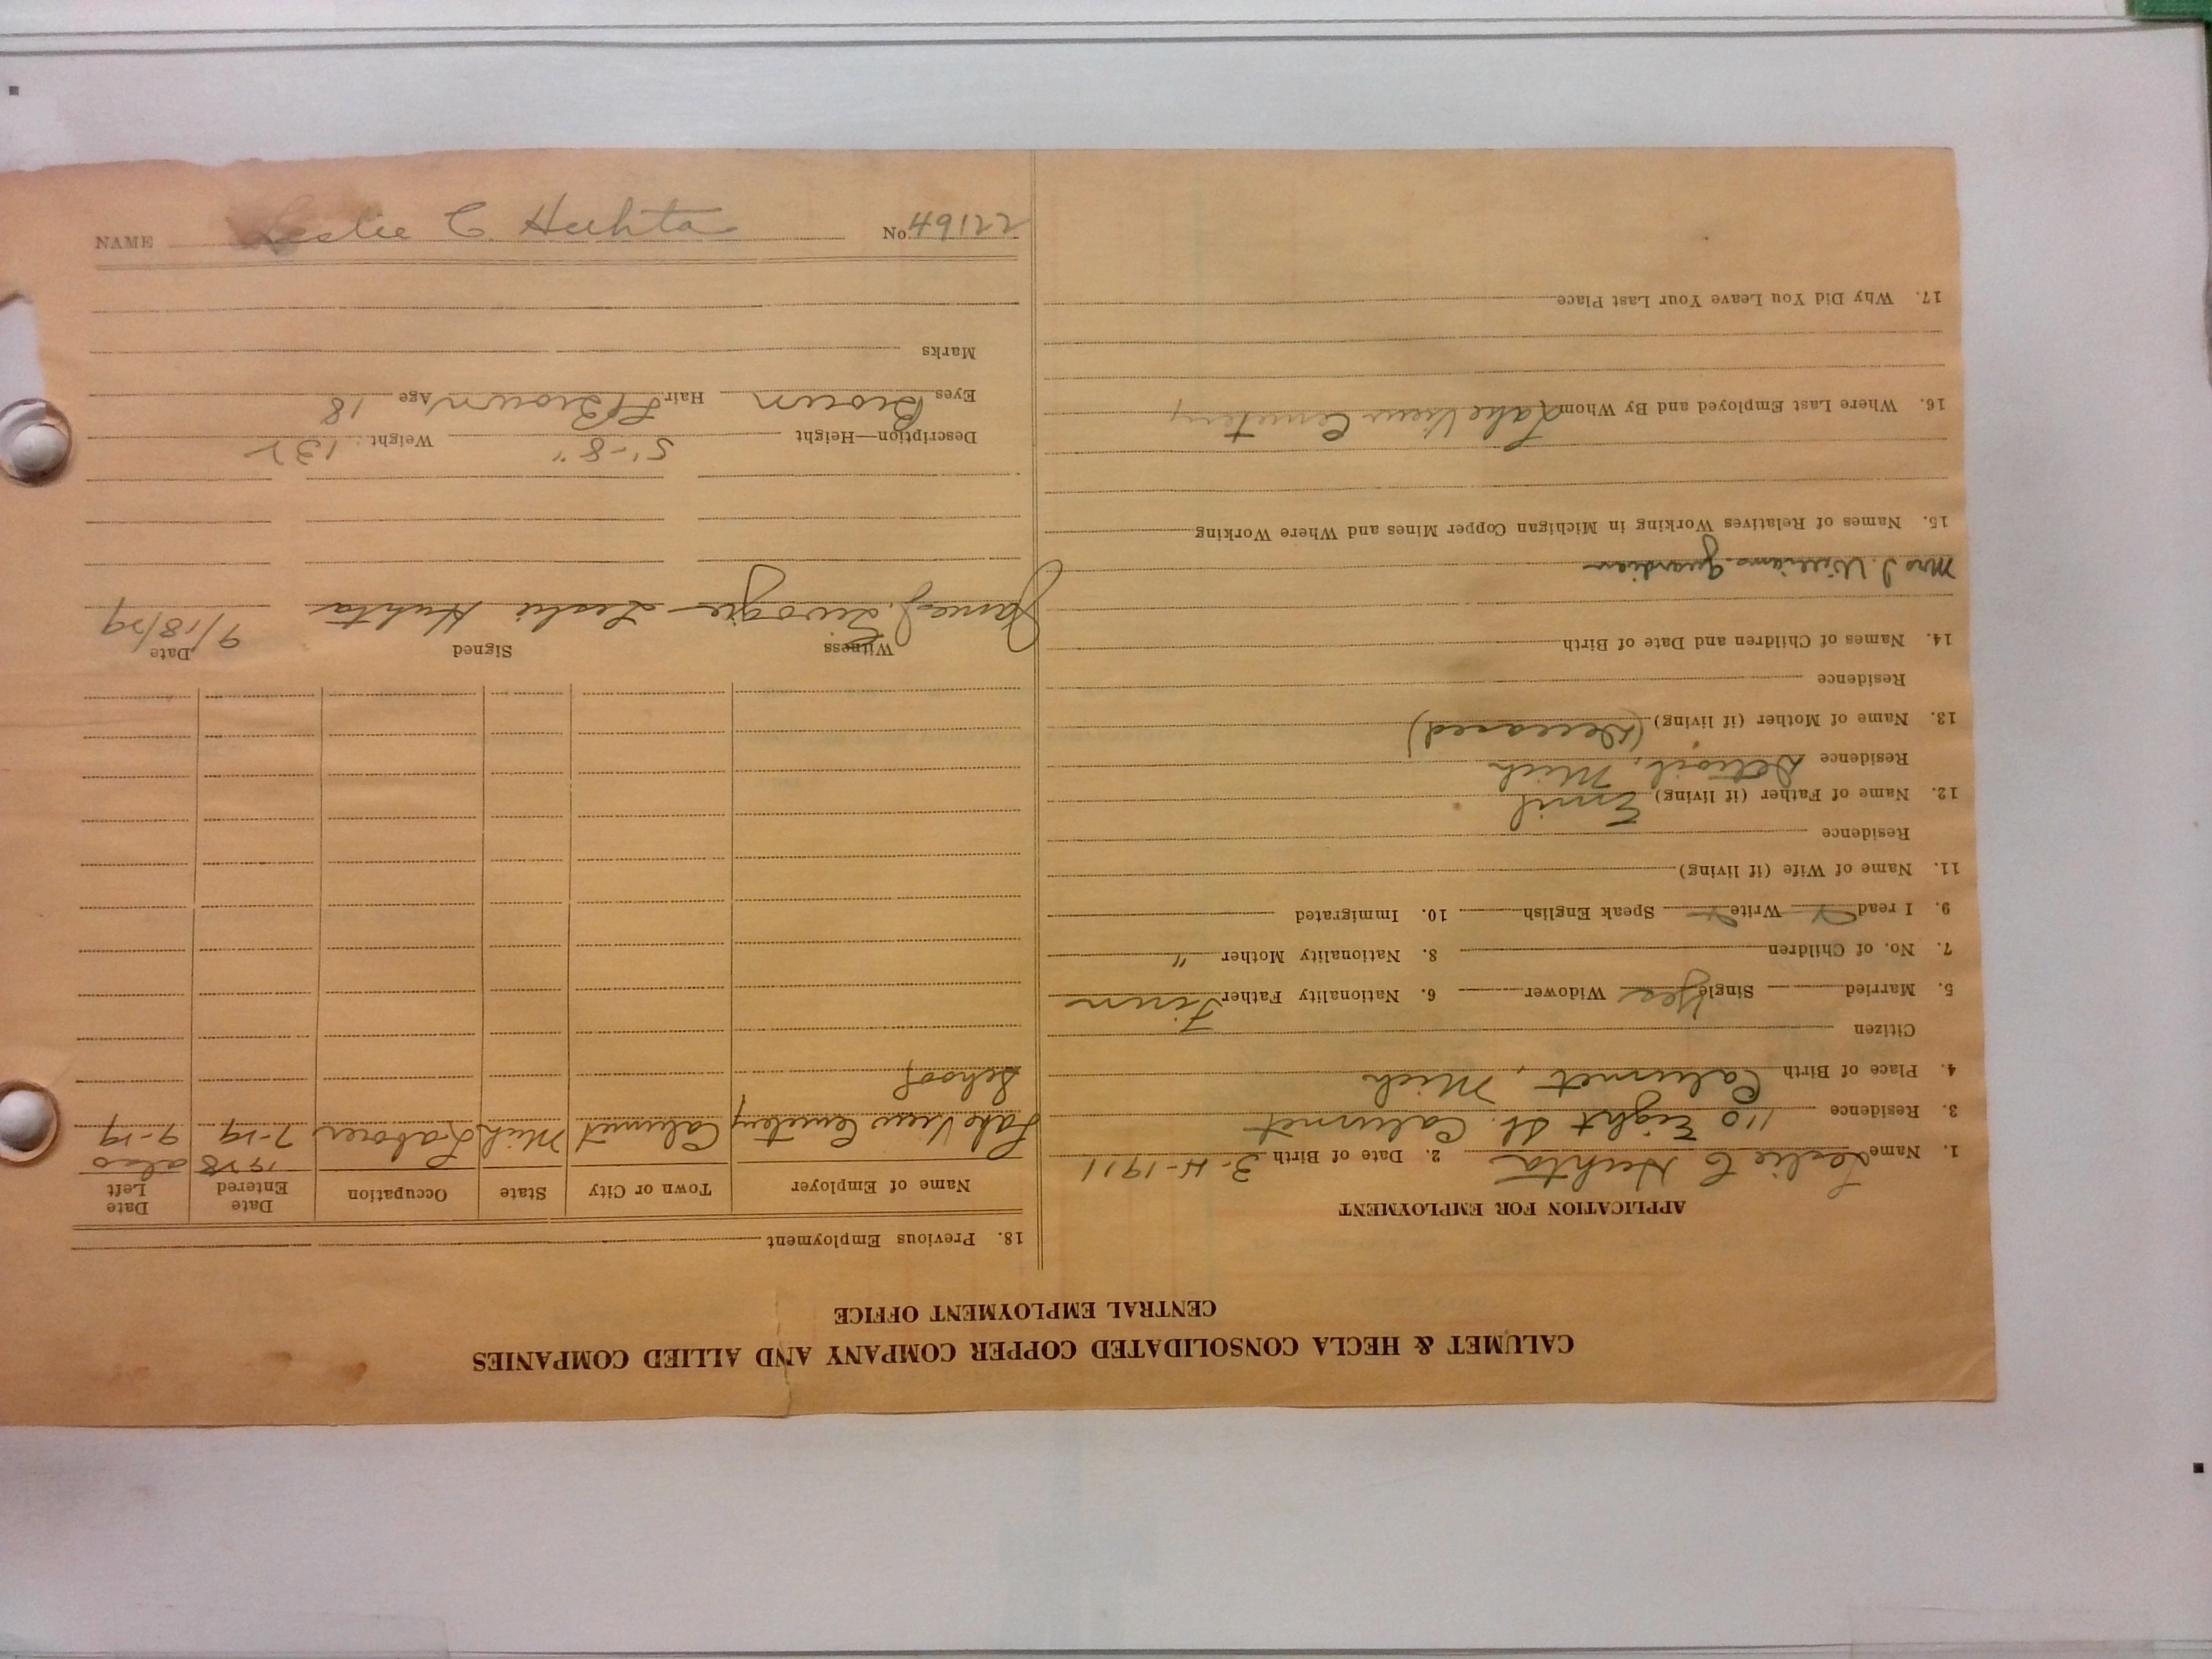 CALUMET & HECLA CONSOLIDATED COPPER COMPANY AND ALLIED COMPANIES
CENTRAL EMPLOYMENT OFFICE
APPLICATION FOR EMPLOYMENT
1. Name Leslie C Huhta 2. Date of Birth 3-4-1911
3. Residence 110 Eight St. Calumet
4. Place of Birth Calumet, Mich
Citizen
5. Married Single Yes Widower 6. Nationality Father Finn
7. No. of Children 8. Nationality Mother "
9. I read Write Speak English 10. Immigrated
11. Name of Wife (if living)
Residence
12. Name of Father (if living) Emil
Residence Detroit, Mich
13. Name of Mother (if living) (Deceased)
Residence
14. Names of Children and Date of Birth
Mrs J. Williams-guardian
15. Names of Relatives Working in Michigan Copper Mines and Where Working
16. Where Last Employed and By Whom Lake View Cemetery
17. Why Did You Leave Your Last Place
18. Previous Employment
Name of Employer Town or City State Occupation Date Entered Date Left
1928 also
Lake View Cemetery Calumet Mich Laborer 7-29 9-29
School
Witness Signed Date
James J. Leslie Huhta 9/18/29
Description—Height 5'-8" Weight 132
Eyes Brown Hair Lt Brown Age 18
Marks
NAME Leslie C. Huhta No. 49122